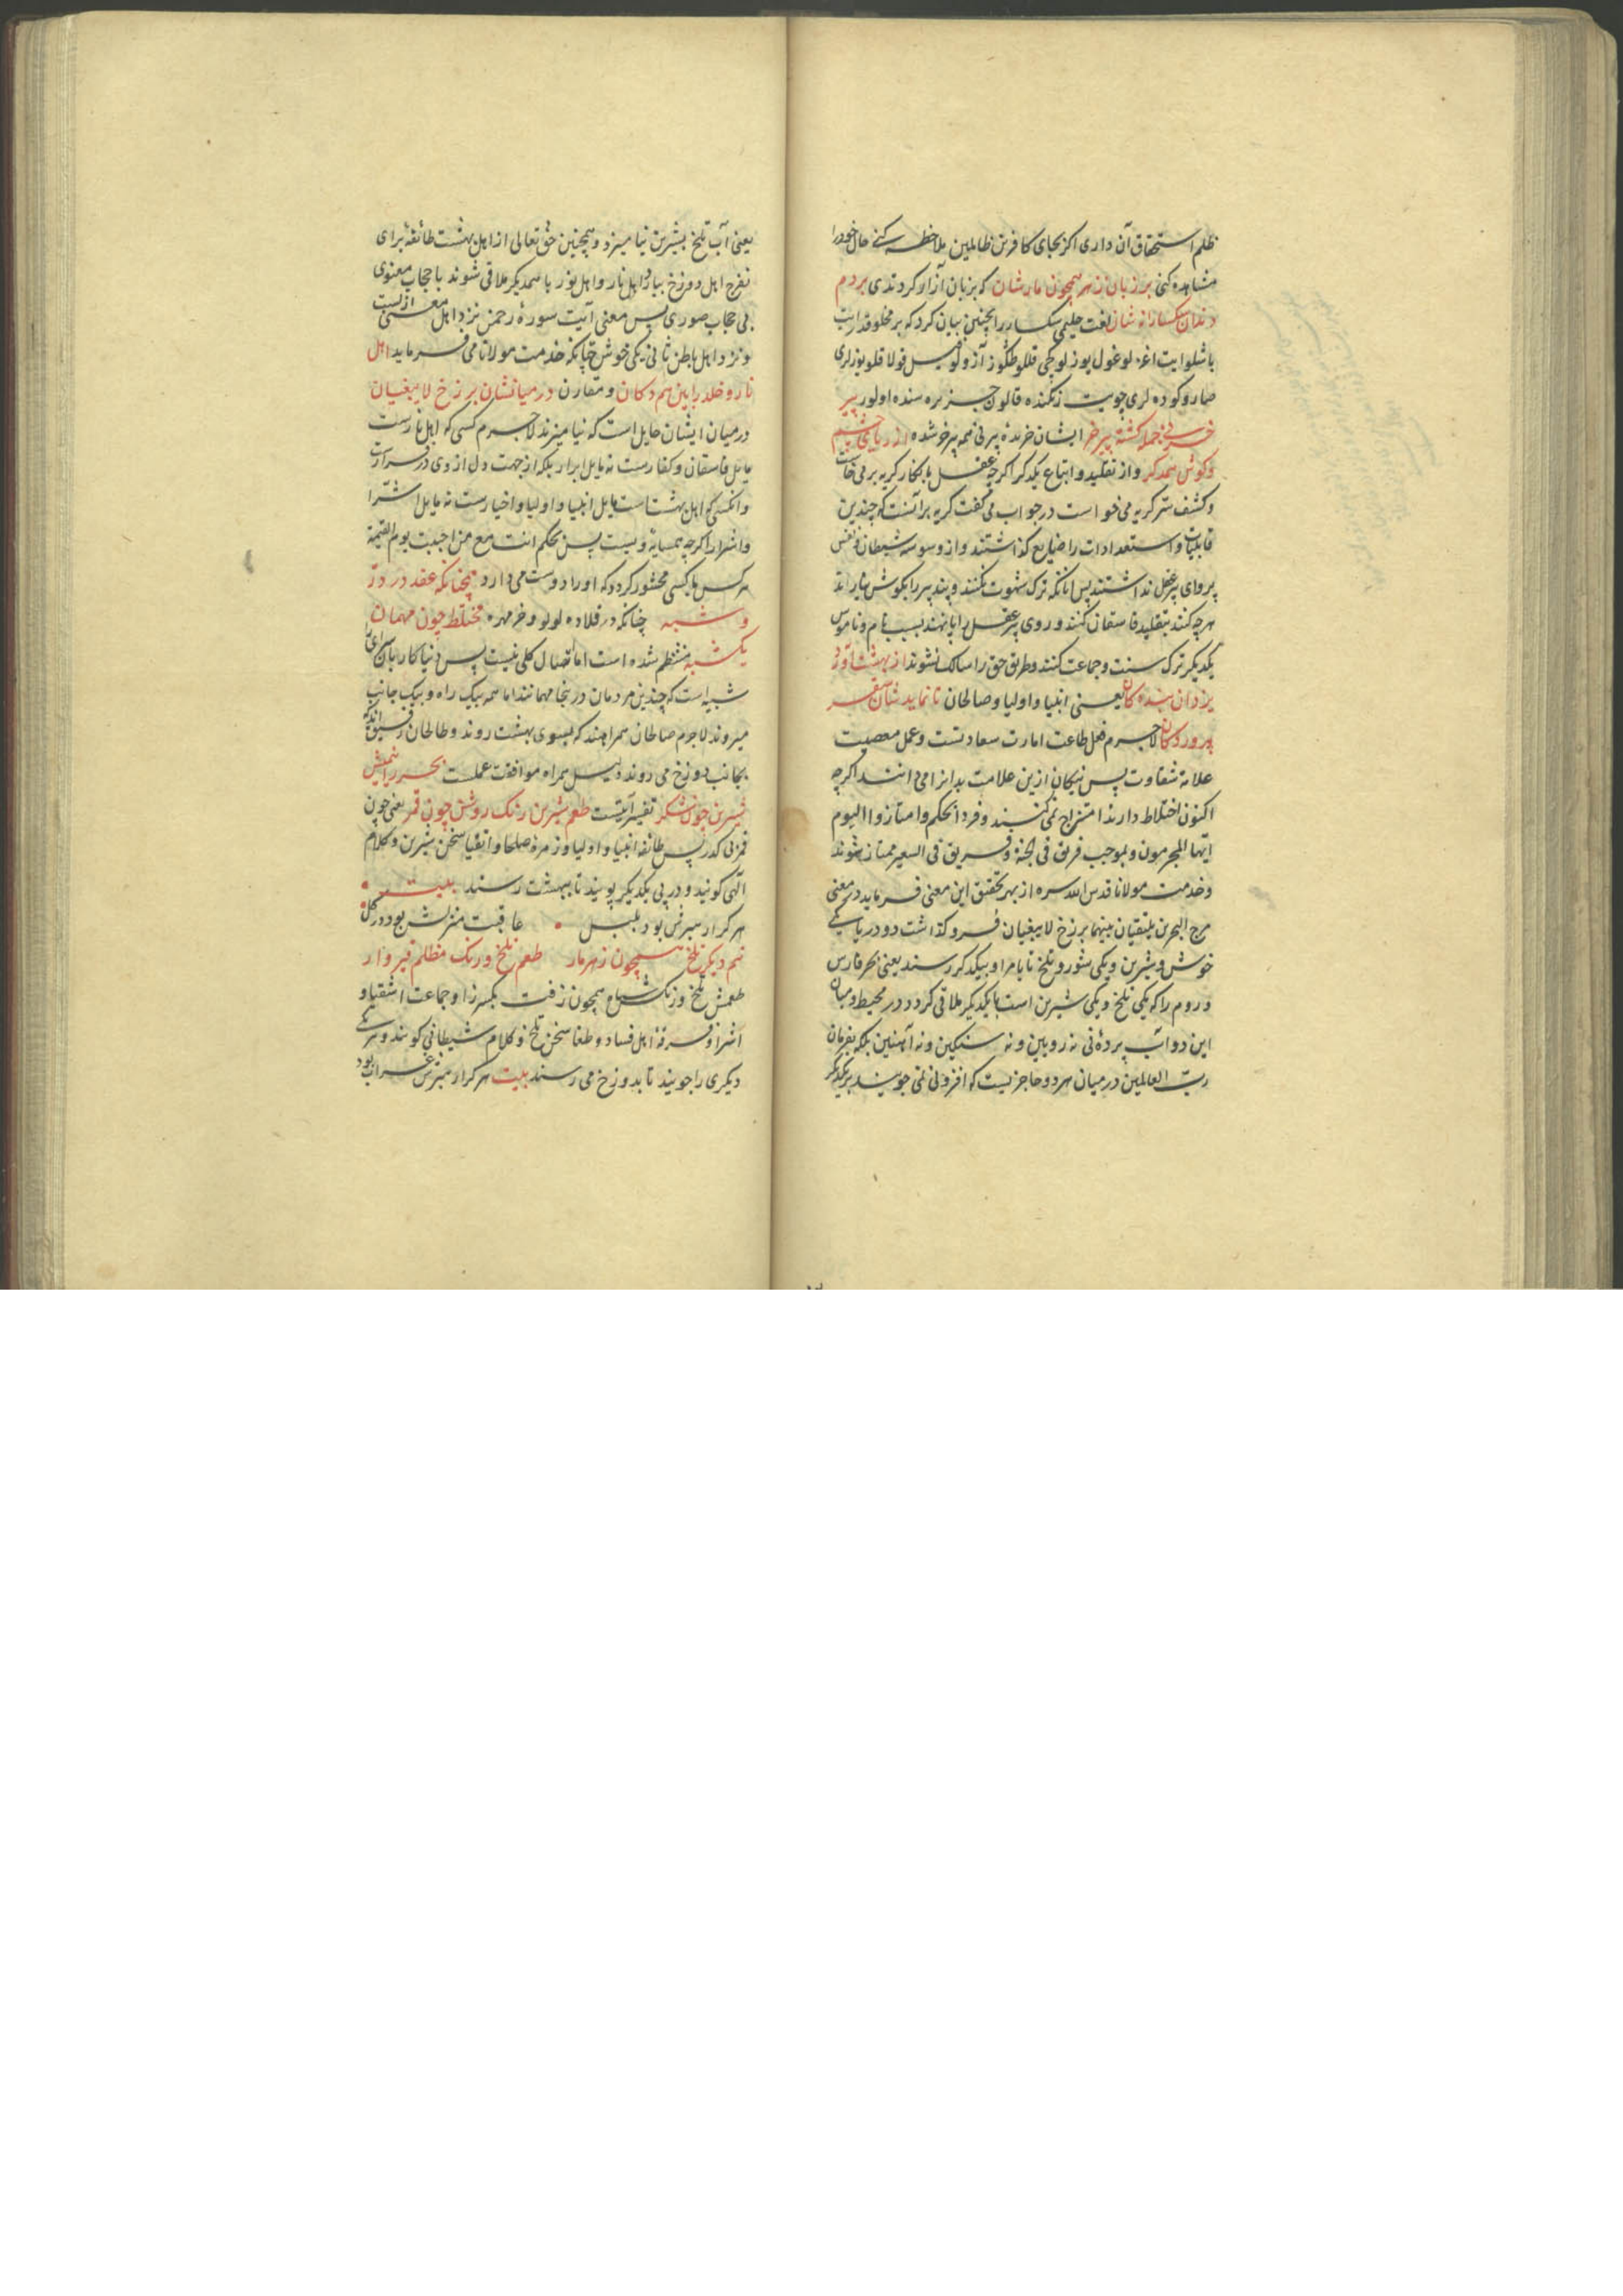 ظلم استحقاق آن داری اکر بجای کافرین ظالمین ملاحظه کنی حال خود را
مشاهده کنی بر زبان زهر همچون مارشان که بزبان آزار کردندی بردم
دندان سکسارانه شان لغت حلیمی سکسار را بچنین بیان کرد که بر مخلوقدر ایت
باشلو ایت اغزلو غول یوزلو
صارو کوده لری
خر نی جمله کشته پیر خر ایشان خرنده پیر نی همه پیر خر شده از ریای چشم
و کوش همدکر و از تقلید و اتباع یکدکر اکرچه عقل بانکار کریه بر می خاست
و کشف سر کریه می خواست در جواب می کفت کریه بر آنست که چندین
قابلیات و استعدادات را ضایع کذاشتند و از وسوسه شیطان و نفس
پروای پیر عقل نداشتند پس انانکه ترک شهوت نکنند و پند پیر را بکوش
هرچه کنند بتقلید فاسقان کنند و روی پیر عقل را پا نهند بسبب نام و ناموس
یکدیکر ترک سنت و جماعت کنند و طریق حق را سالک نشوند از بهشت آورد
یزدان بنده کان یعنی انبیا و اولیا و صالحان تا نماید شان سقر
پرورد کان لاجرم فعل طاعت امارت سعادتست و عمل معصیت
علامة شقاوت پس نیکان ازین علامت بدانرا می دانند اکرچه
اکنون اختلاط دارند امتزاج نمی کنند و فردا بحکم وامتازوا الیوم
ایها المجرمون و بموجب فریق فی الجنة و فریق فی السعیر ممتاز شوند
و خدمت مولانا قدس الله سره از بهر تحقیق این معنی فرماید در معنی
مرج البحرین یلتقیان بینهما برزخ لا یبغیان فرو کذاشت دو دریا یکی
خوش و شیرین و یکی شور و تلخ تا بامر او بیکدکر رسند یعنی بحر فارس
و روم را که یکی تلخ و یکی شیرین است بایکدیکر ملاقی کردد در محیط و میان
این دو آب پرده نی نه رویین و نه سنکین و نه آهنین بلکه بفرمان
رب العالمین در میان هر دو حاجزیست که افزونی نمی جویند بر یکدیکر
یعنی آب تلخ بشیرین نیامیزد و همچنین حق تعالی از اهل بهشت طائفه برای
تفرج اهل دوزخ بیارد اهل نار و اهل نور با همدیکر ملاقی شوند با حجاب معنوی
بی حجاب صوری پس معنی آیت سوره رحمن نزد اهل معنی
و نزد اهل باطن ثانی یکی خوش چنانکه خدمت مولانا می فرماید اهل
نار و خلد را بین هم دکان و مقارن در میانشان برزخ لا یبغیان
در میان ایشان حایل است که نیامیزند لاجرم کسی که اهل نارست
مایل فاسقان و کفارست نه مایل ابرار بلکه از جهت دل از وی در فرارست
وانکسی که اهل بهشت است مایل انبیا و اولیا و اخیارست نه مایل اشرار
و اشرار اکرچه همسایه ویست پس بحکم انت مع من احببت یوم القیمة
هر کس با کسی محشور کردد که او را دوست می دارد همچنانکه عقد در در
و شبه چنانکه در قلاده لولو و خر مهره مختلط چون مهمان
یکشبه منتظم شده است اما اتصال کلی نیست پس دنیا کاربان سرای را
شبیه است که چندین مردمان درینجا مهمانند اما همه بیک راه و بیک جانب
میروند لاجرم صالحان همراهند که بسوی بهشت روند و طالحان رفیق اند که
بجانب دوزخ می روند دلیل همراه موافقت عملست بحر را نیمیش
شیرین چون شکر تفسیر آیتست طعم شیرین رنک روشن چون قمر یعنی چون
قمر بی کدر پس طائفه انبیا و اولیا و زمره صلحا و اتقیا سخن شیرین و کلام
الهی کویند و در پی یکدیکر پویند تا ببهشت رسند بیت
هر کرا رهبرش بود بلبل عاقبت منزلش بود در کل
نیم دیکر تلخ همچون زهر مار طعم تلخ و رنک مظلم قیروار
طعمش تلخ و رنکش سیاه همچون زفت بکسر زا و جماعت اشقیا و
اشرار و فرقه اهل فساد و طغا سخن تلخ و کلام شیطانی کویند و هر یکی
دیکری را جویند تا بدوزخ می رسند بیت هر کرا رهبرش غراب بود